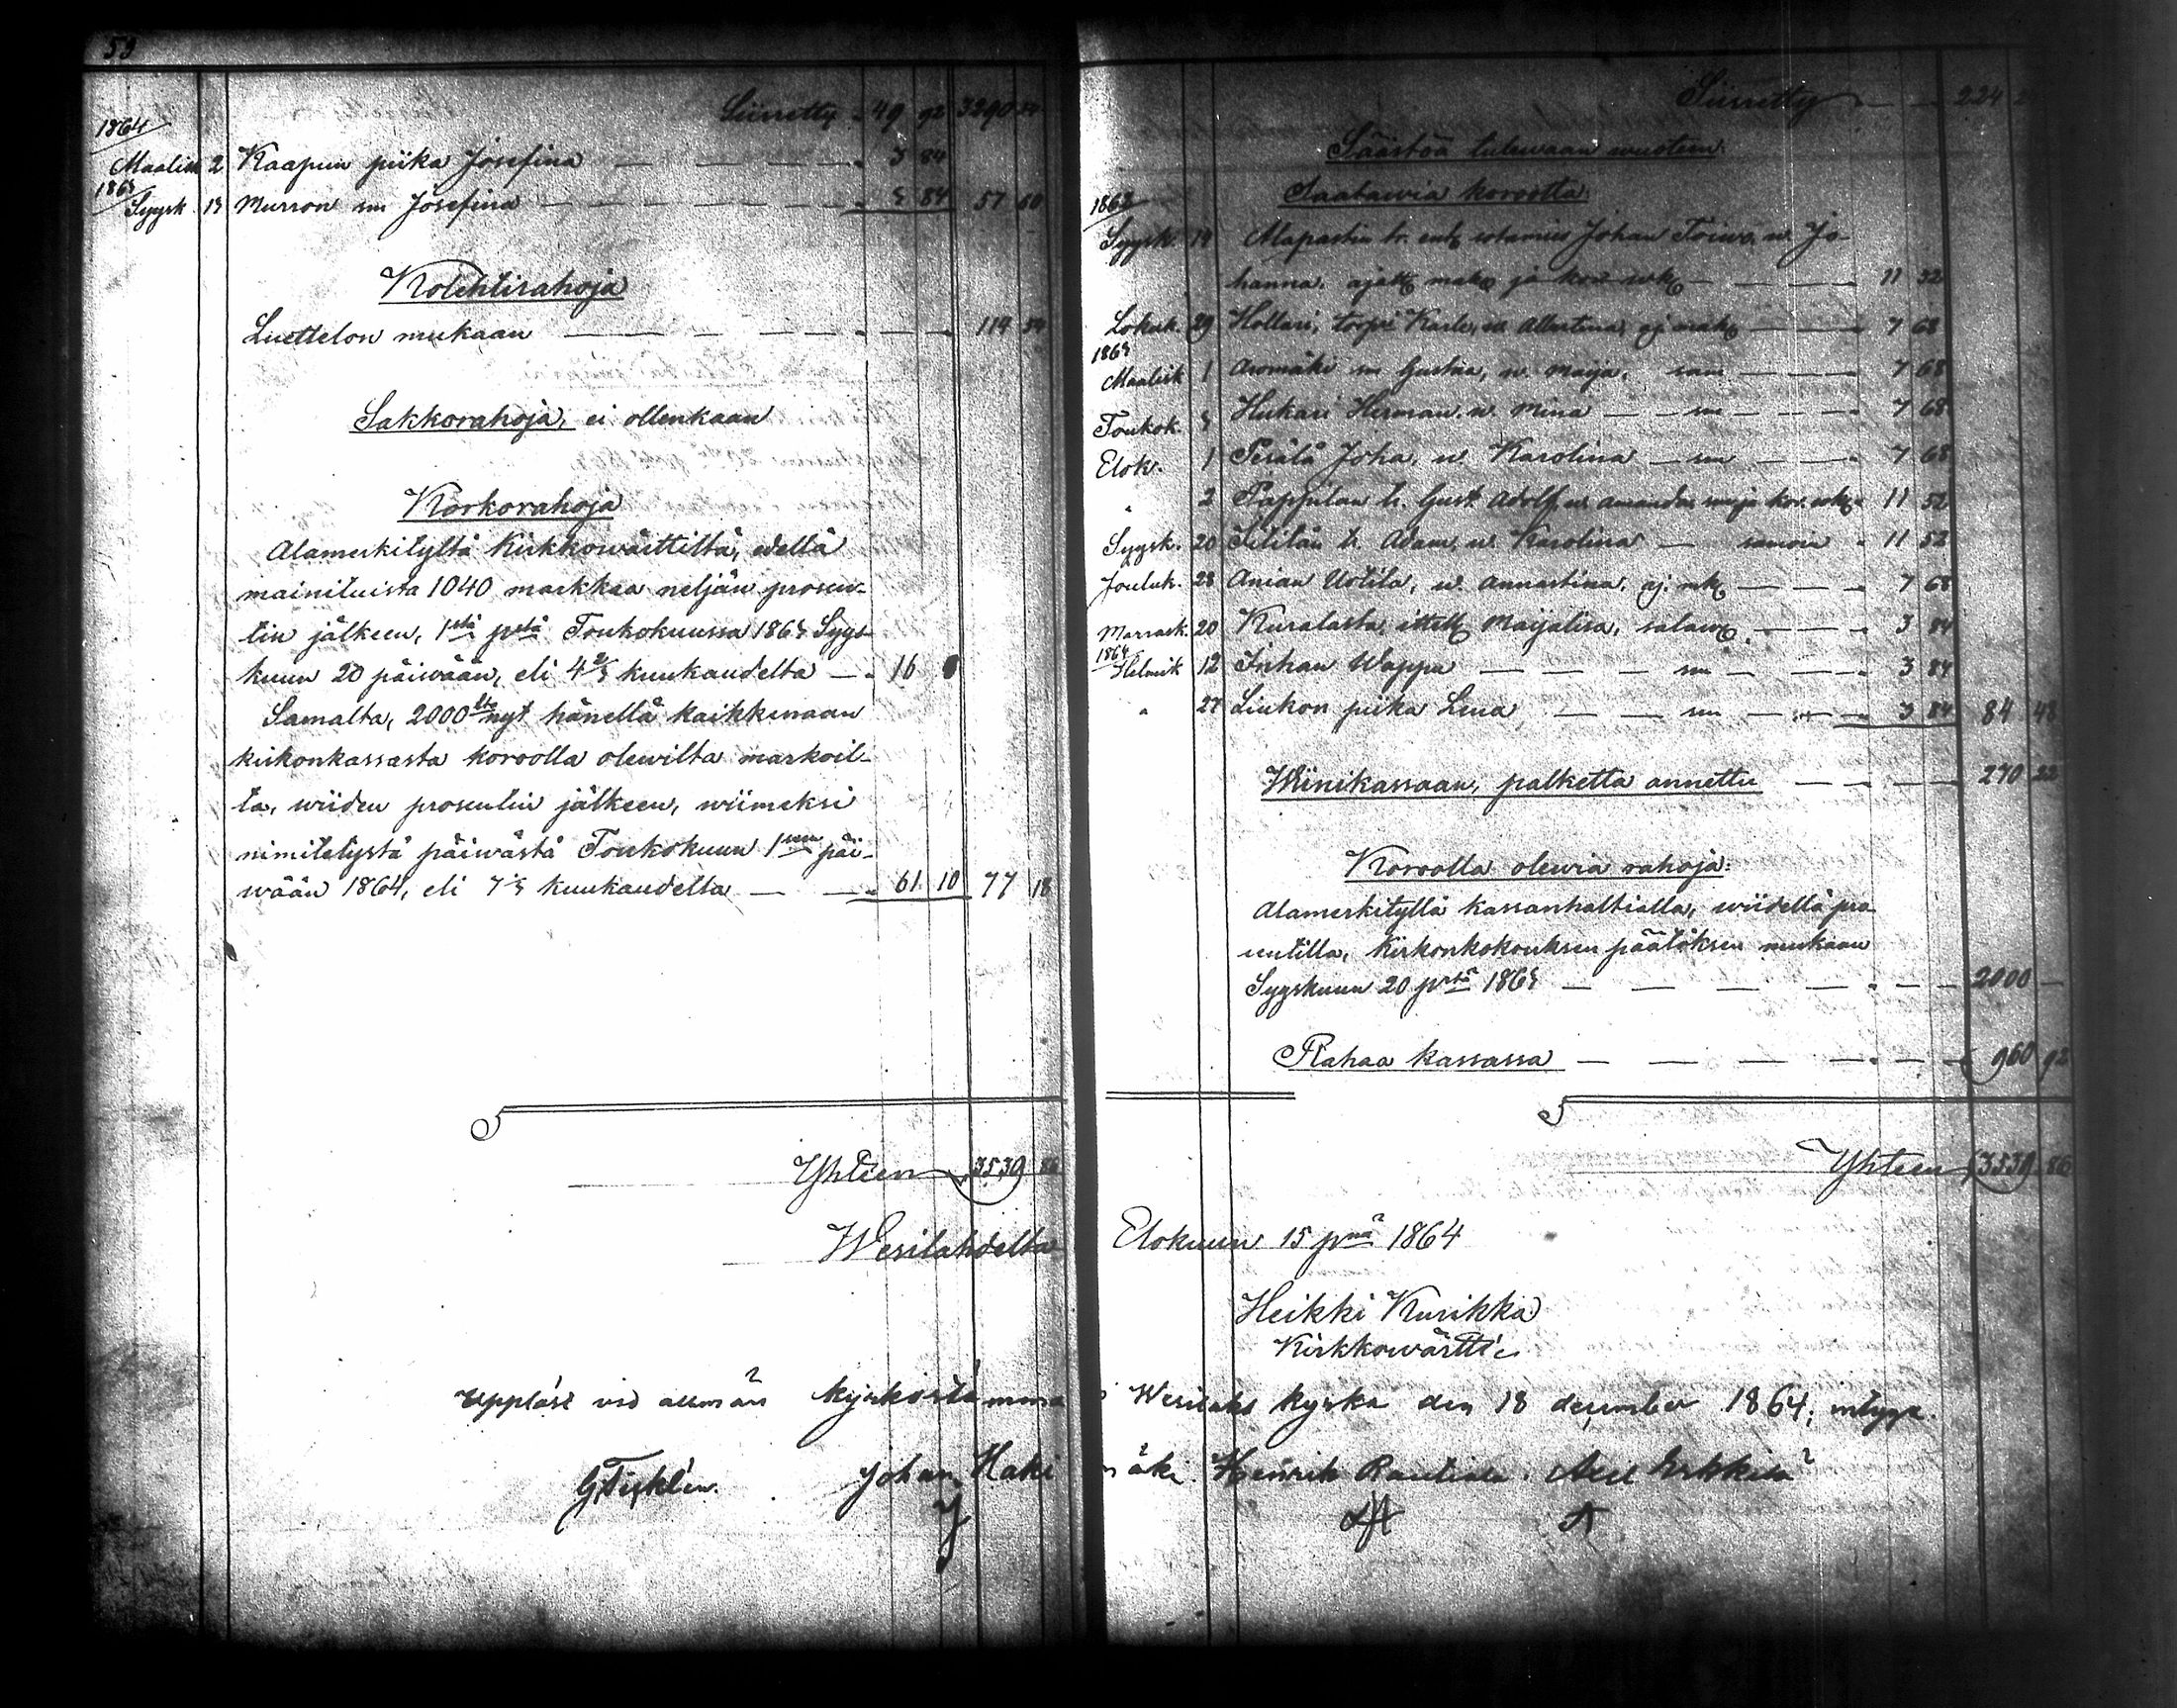 53
Siirretty 49 92 3290 54
1864
Maalisk 2 Kaapun piika Josefina 3 84
1863
Syysk. 13 Murron sm Josefina 3 84 57 60
Kolehtirahoja
Luettelon mukaan 114 54
Sakkorahoja, ei ollenkaan
Korkorahoja
Alamerkityltä Kirkkowärttiltä, edellä
mainituista 1040 markkaa neljän prosen-
tin jälkeen, 1stä pstä Toukokuussa 1863 Syys-
kuun 20 päiwään, eli 4 2/3 kuukaudelta 16
Samalta, 2000lta nyt hänellä kaikkenaan
kirkonkassasta koroolla olewilta markoil-
ta, wiiden prosentin jälkeen, wiimeksi
nimitetystä päiwästä Toukokuun 1sen päi-
wään 1864, eli 7 1/3 kuukaudelta 61 10 77 18
Yhteen 3539 86
Wesilahdelta
Uppläst vid allmän kyrkostämma
G. Fisklin. Johan Haki
Siirretty 224
Säästöä tulewaan wuoteen.
Saatawia korootta:
1862
Syysk. 14 Alapastin tr. Johan Toiwo, w. Jo-
hanna, ajatt mak ja kow 11 52
Lokak. 29 Hollari, torpp Karle, w. Albertina, aj mak 7 68
1863
Maalisk 1 Aromäki sm Gustaa, w. Maija, sam 7 68
Toukok. 3 Hukari Herman, w. Mina sm 7 68
Elok. 1 Perälä Joha, w. Karolina sm 7 68
" 2 Pappilan tr. Gust. Adolf, w. Amanda 11 52
Syysk. 20 Tilitän tr Adam, w. Karolina samoin 11 52
Jouluk. 28 Anian Uotila, w. Annastina, aj. mk 7 68
Marrask. 20 Kuralasta, ittell Maijalisa, salaw 3 84
1864
Helmik 12 Inhan Wappu sm 3 84
" 27 Liukon piika Lena sm 3 84 84 48
Wiinikassaan, palketta annettu 270 22
Koroolla olewia rahoja:
Alamerkityllä kassanhaltialla, wiidellä pro
sentilla, Kirkonkokouksen päätöksen mukaan
Syyskuun 20 pstä 1863 2000 —
Rahaa kassassa 960 92
Yhteen 3539 86
Elokuun 15 pnä 1864
Heikki Kurikka
Kirkkowärtti
i Wesilaks kyrka den 18 december 1864; intyga.
mäki Henrik Rautiala. Axel Erkkilä